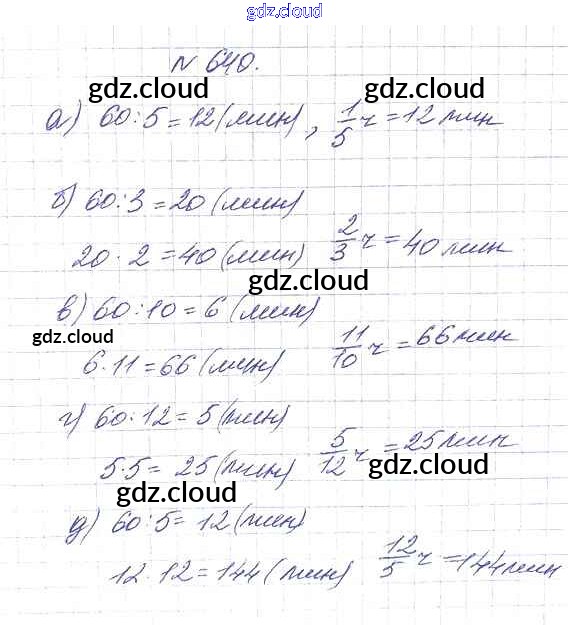 gdz.cloud
gdz.cloud
№ 640.
gdz.cloud gdz.cloud
а) 60:5=12(мин), 1/5 ч = 12 мин
б) 60:3=20 (мин)
20·2=40 (мин) 2/3 ч = 40 мин
gdz.cloud
в) 60:10=6 (мин)
gdz.cloud
6·11=66 (мин) 11/10 ч = 66 мин
г) 60:12=5 (мин)
5·5= 25 (мин) 5/12 ч = 25 мин
gdz.cloud gdz.cloud
д) 60:5= 12 (мин)
12·12=144 (мин) 12/5 ч = 144 мин